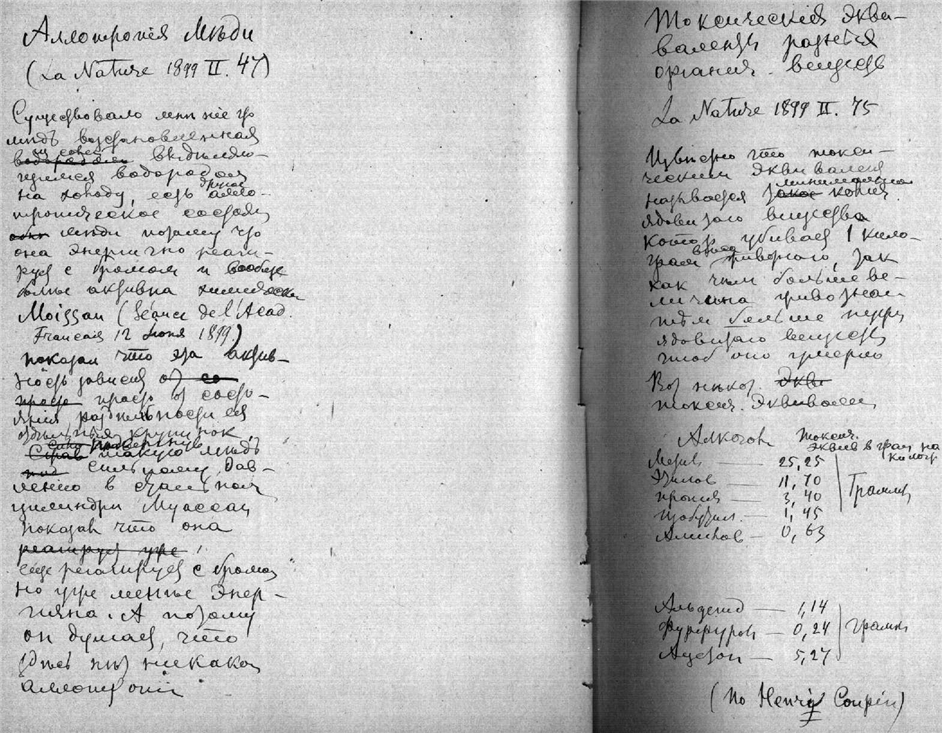 Аллотропія Мѣди
(La Nature 1899 II. 47)
Существовало мнѣніе что
мѣдь возстановленная
водородомъ
на холоду, есть аллo-
тропическое состоян
мѣди потому что
она энергично реаги-
руе с бромом и вообще
активна химически
Moissan (Séance de l'Acad.
Français 12 Июня 1899)
показал что эта актив-
ность зависи от
просто от состо-
яния
крупинок
такую мѣдь
сильному дав-
лению в стальном
цилиндрѣ Муассан
показал что она
реагируе уже
еще реагируе с бромом
но уже менѣе энер-
гично. А потому
он думает, что
здѣсь нѣт никакой
аллотропіи
Токсическія экви-
валенты разныхъ
органич. веществ
La Nature 1899 II. 75
Извѣстно что токси-
ческим эквивален
называется такое колич.
ядовитаго вещества
котор. убивае 1 кило-
грам животного, так
как чѣм больше ве-
личина животнаго
тѣм больше нужн
ядовитаго вещества
чтоб оно умерло
Вот нѣкот. экви
токсич. эквивален
Алкоголи
токсич.
эквив в грам на
килогр.
Метил — 25,25
Этилов — 11,70
пропил — 3,40
Изобутил. — 1,45
Амилов — 0,63
Грамм
Альдегид — 1,14
Фурфурол — 0,24
Ацетон — 5,27
грамм
(По Henri Coupin)